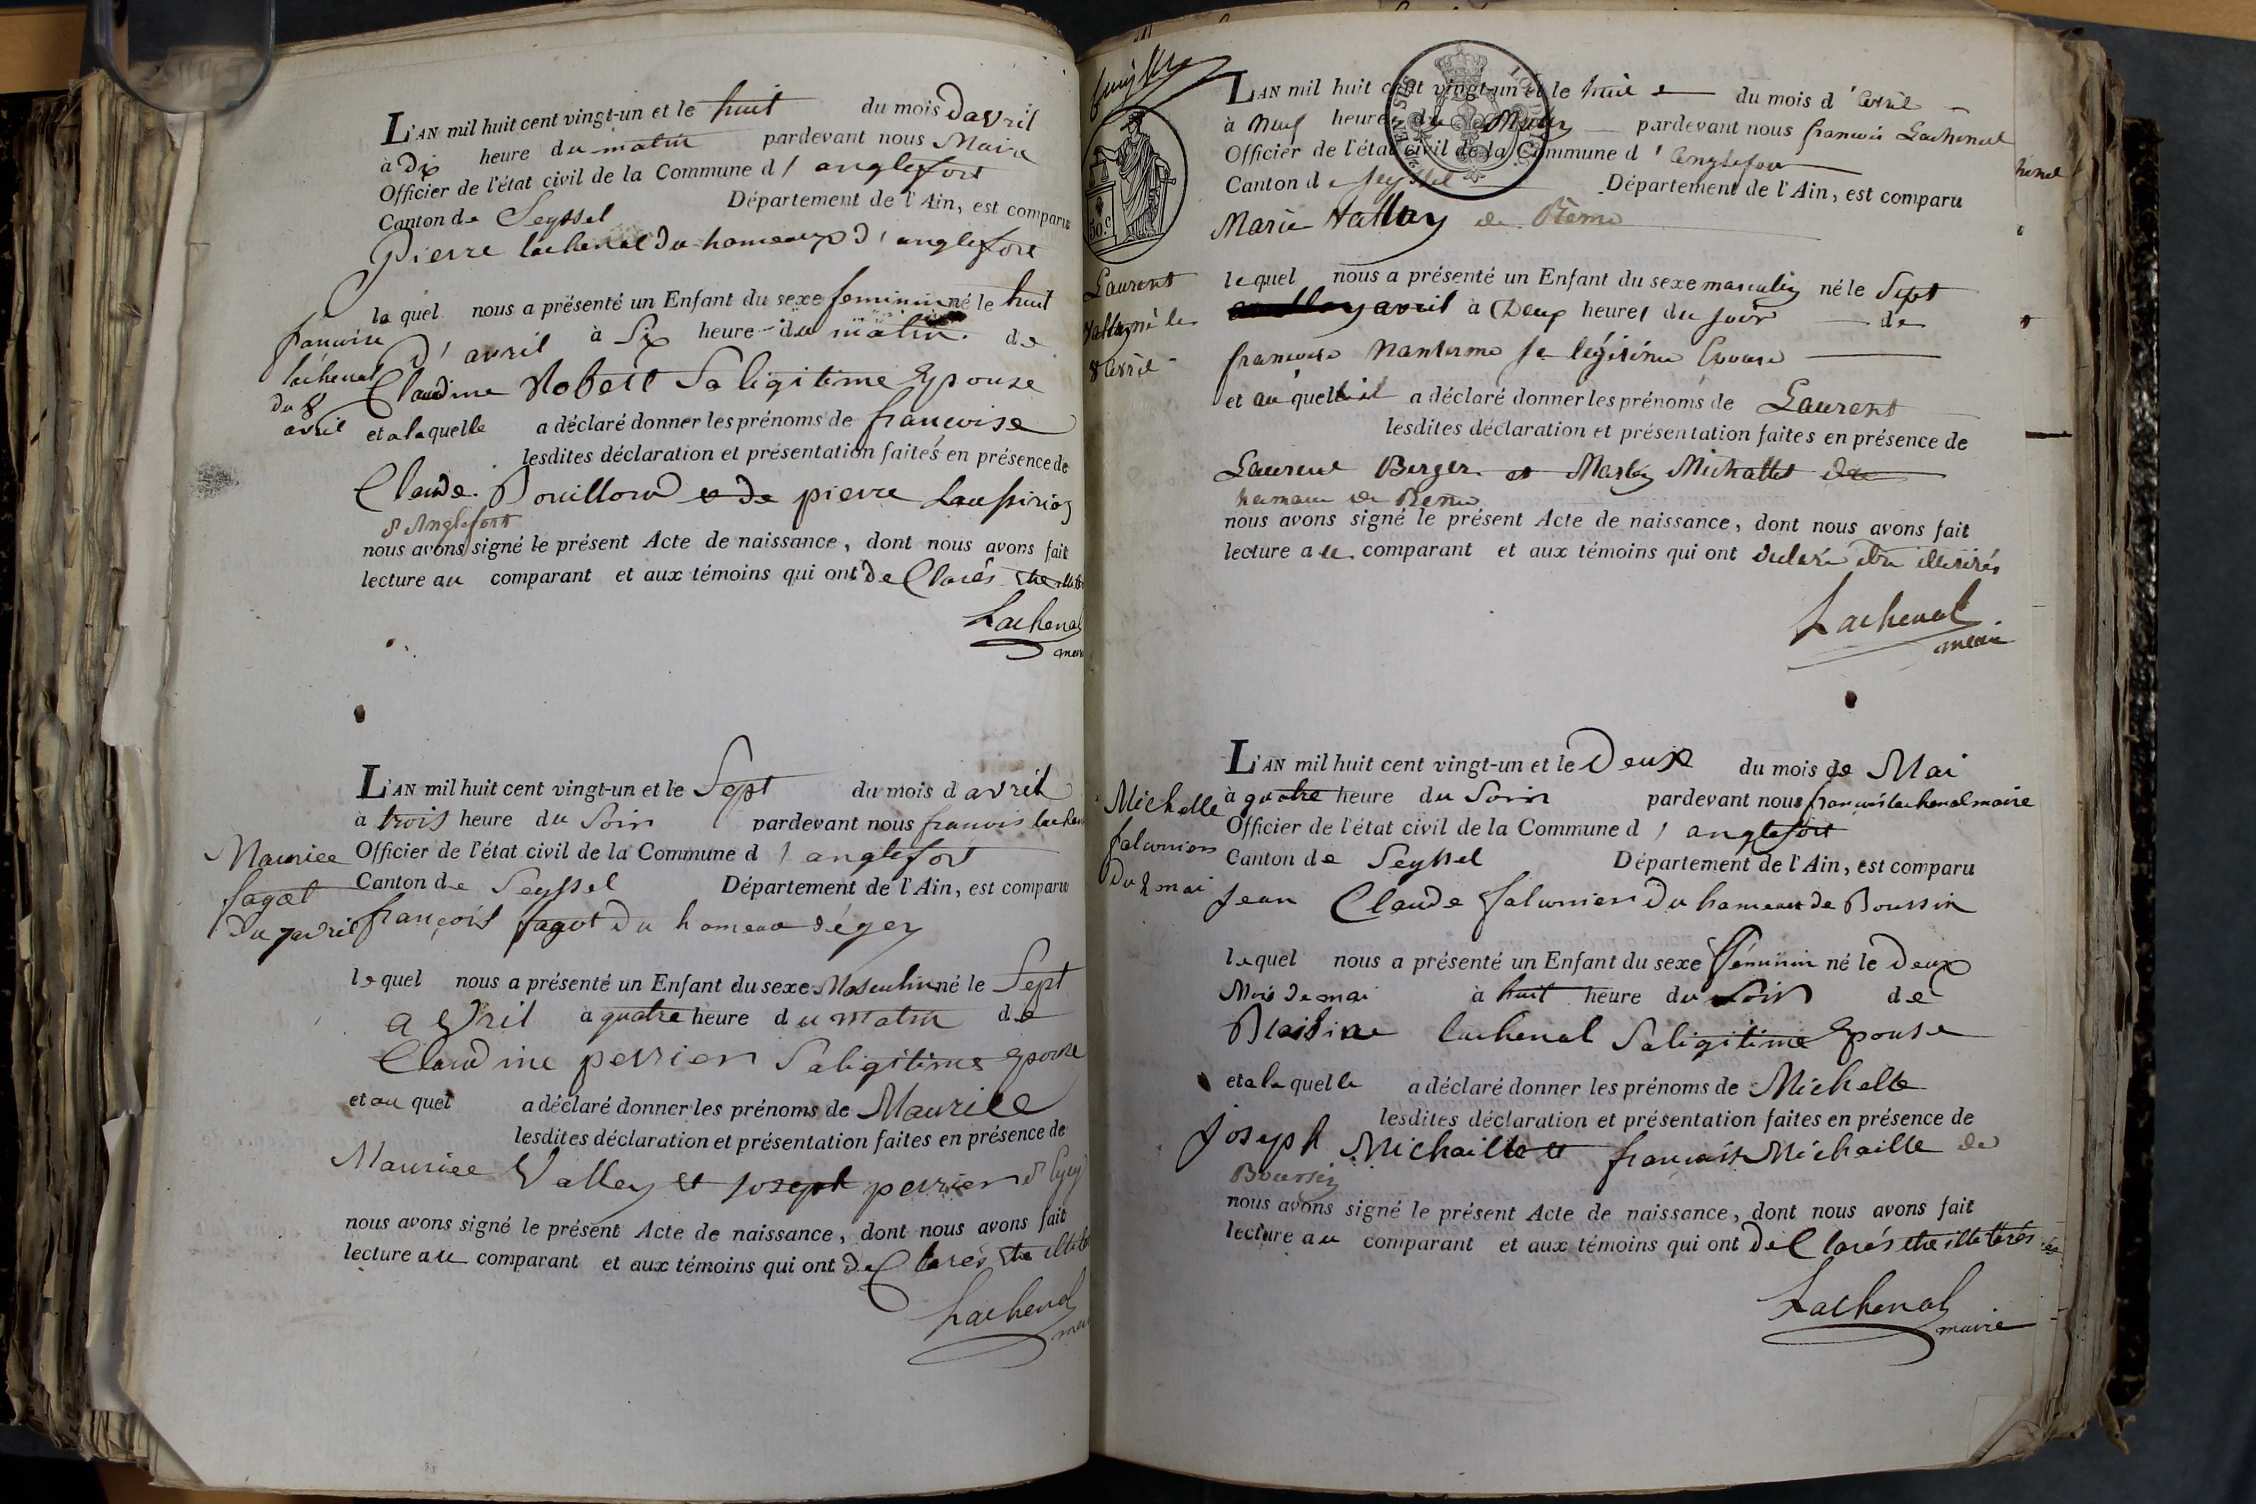 L'AN mil huit cent vingt-un et le huit du mois d avril
à dix heure du matin pardevant nous Maire
Officier de l'état civil de la Commune d' anglefort
Canton de Seyssel Département de l'Ain, est comparu
Pierre lachenal du hameaux d'anglefort
la quel nous a présenté un Enfant du sexe feminin né le huit
d'avril à Six heure du matin de
francoise
lachenal
du 8
avril
Claudine Robert Sa ligitime Epouse
et a laquelle a déclaré donner les prénoms de francoise
lesdites déclaration et présentation faites en présence de
Claude Bouillond & de pierre
d'Anglefort
nous avons signé le présent Acte de naissance, dont nous avons fait
lecture au comparant et aux témoins qui ont de Clarés
Lachenal
L'AN mil huit cent vingt-un et le Sept du mois d avril
à trois heure du Soir pardevant nous francois
Officier de l'état civil de la Commune d' anglefort
Canton de Seyssel Département de l'Ain, est comparu
Maurice
fagot
du 7 avril
françois fagot du hameau
le quel nous a présenté un Enfant du sexe Masculin né le Sept
avril à quatre heure du matin de
Claudine perrier Sa ligitime Epouse
et au quel a déclaré donner les prénoms de Maurice
lesdites déclaration et présentation faites en présence de
Maurice Valley et joseph perrier
nous avons signé le présent Acte de naissance, dont nous avons fait
lecture au comparant et aux témoins qui ont de Clarés
Lachenal
L'AN mil huit cent vingt-un et le huit du mois d'avril
à neuf heures du Matin pardevant nous francois Lachenal
Officier de l'état civil de la Commune d'anglefort
Canton de Seyssel Département de l'Ain, est comparu
Marie Vallay de
50 c
Laurent
né le
8 avril
le quel nous a présenté un Enfant du sexe masculin né le Sept
avril à Deux heures du soir de
francoise sa légitime Epouse
et au quel il a déclaré donner les prénoms de Laurent
lesdites déclaration et présentation faites en présence de
Laurent Berger et Michallet
hamau de
nous avons signé le présent Acte de naissance, dont nous avons fait
lecture a u comparant et aux témoins qui ont
Lachenal
maire
L'AN mil huit cent vingt-un et le Deux du mois de Mai
à quatre heure du Soir pardevant nous francois lachenal maire
Officier de l'état civil de la Commune d' anglefort
Canton de Seyssel Département de l'Ain, est comparu
Michelle
falconier
du 2 mai
Jean Claude falconier du hameau de Boursin
le quel nous a présenté un Enfant du sexe féminin né le Deux
Mois de mai à huit heure du Soir de
lachenal Sa ligitime Epouse
et a la quelle a déclaré donner les prénoms de Michelle
lesdites déclaration et présentation faites en présence de
joseph Michaille & francois Michaille de
Boursin
nous avons signé le présent Acte de naissance, dont nous avons fait
lecture au comparant et aux témoins qui ont de Clarés etre illeterés
Lachenal
maire